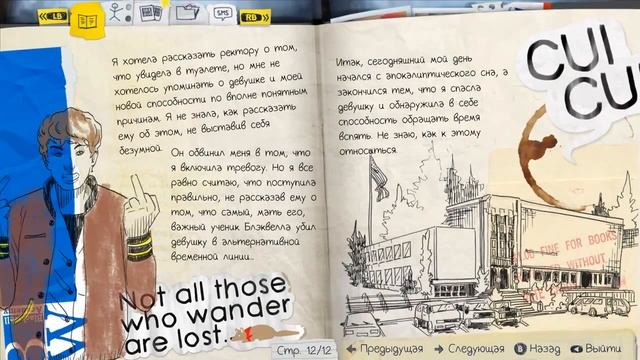 LB
SMS
RB
Я хотела рассказать ректору о том,
что увидела в туалете, но мне не
хотелось упоминать о девушке и моей
новой способности по вполне понятным
причинам. Я не знала, как рассказать
ему об этом, не выставив себя
безумной.
Он обвинил меня в том, что
я включила тревогу. Но я все
равно считаю, что поступила
правильно, не рассказав ему о
том, что самый, мать его,
важный ученик Блэквелла убил
девушку в альтернативной
временной линии..
Not all those
who wander
are lost..
Итак, сегодняшний мой день
начался с апокалиптического сна, а
закончился тем, что я спасла
девушку и обнаружила в себе
способность обращать время
вспять. Не знаю, как к этому
относиться.
CUI
CUI
FINE FOR BOOKS
WITHOUT
Стр. 12/12
Предыдущая
Следующая
B Назад
Выйти